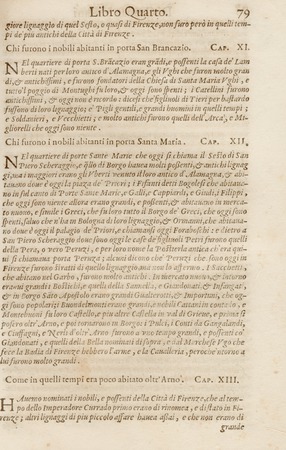 Libro Quarto. 79
giore lignaggio di quel Sesto, o quasi di Firenze, non furo però in quelli tem-
pi de più antichi della Città.
Chi furono i nobili abitanti in porta San Brancazio. CAP. XI.
NEl quartiere di porta S. Brācazio eran grādi, e possenti la casa de' Lam
berti nati per loro antico d'Alamagna, e gli Vghi che furon molto gran
di, & antichissimi, e furono fondatori della Chiesa di Santa Maria Vghi, e
tutto'l poggio di Montughi fu loro, & oggi sono spenti; i Catellini furono
antichissimi, & oggi non è ricordo: dicesi che figliuoli di Tieri per bastardo
fussono di loro lignaggio; e Pigli gentili, e grandi huomini in quelli tempi;
e Soldanieri, e Vecchietti; e molto antichi furono quelli dell'Arca, e Mi-
gliorelli che oggi sono niente.
Chi furono i nobili abitanti in porta Santa Maria. CAP. XII.
NEl quartiere di porte Sante Marie che oggi si chiama il Sesto di San
Piero Scheraggio, e dello di Borgo hauea molti possenti, & antichi lignag
gi, ma i maggiori erano gli Vberti venuti il loro antico d'Alamagna, & abi-
tauano doue è oggi la piazza de' Priori;
che oggi sono niente allora erano grandi, e possenti, & abitauano in merca-
to nuouo, e simile i Greci, che fu loro tutto il Borgo de' Greci, che oggi sono
spenti, saluo che n'ha in Bologna di loro lignaggio, & Ormanni, che abitaua-
no doue è oggi il palagio de' Priori, e chiamansi oggi Foraboschi: e dietro a
San Piero Scheraggio doue sono oggi le case de figliuoli Petri furono quelli
della Pera, o vero Peruzzi, e per loro nome la Postierla antica ch'era qui-
ui si chiamaua porta Peruzza: alcuni dicono che' Peruzzi che sono oggi in
Firenze furono stratti di quello lignaggio ma non lo affermo. I Sacchetti,
che abitano nel Garbo, furono molto antichi. In mercato nuouo, erano
grandi i Bostichi, e quelli della Sannella, e Giandonati, & Infangati,
& in Borgo Santo Apostolo erano grandi Gualterotti, & Importuni, che og-
gi sono popolari; Buondelmonti erano grandi, nobili Cattani in contado, e
Montebuoni fu loro Castello, e più altre Castella in val di Grieue, e prima si
posero oltr'Arno, e poi tornarono in Borgo: i Pulci, i Conti da Gangalandi,
e Ciuffagni, e Nerli d'oltr'Arno furono a vno tempo grandi, e possenti co'
Giandonati, e quelli della Bella nominati di sopra, e dal Marchese Vgo che
fece la Badia di Firenze hebbero l'arme, e la Caualleria, perocche intorno a
lui furono molto grandi.
Come in quelli tempi era poco abitato oltr'Arno. CAP. XIII.
HAuemo nominati i nobili, e possenti della Città di Firenze, che al tem-
po dello Imperadore Currado primo erano di rinomea, e di stato in Fi-
renze; altri lignaggi di piu piccolo affare hauea assai, e che non erano di
grande